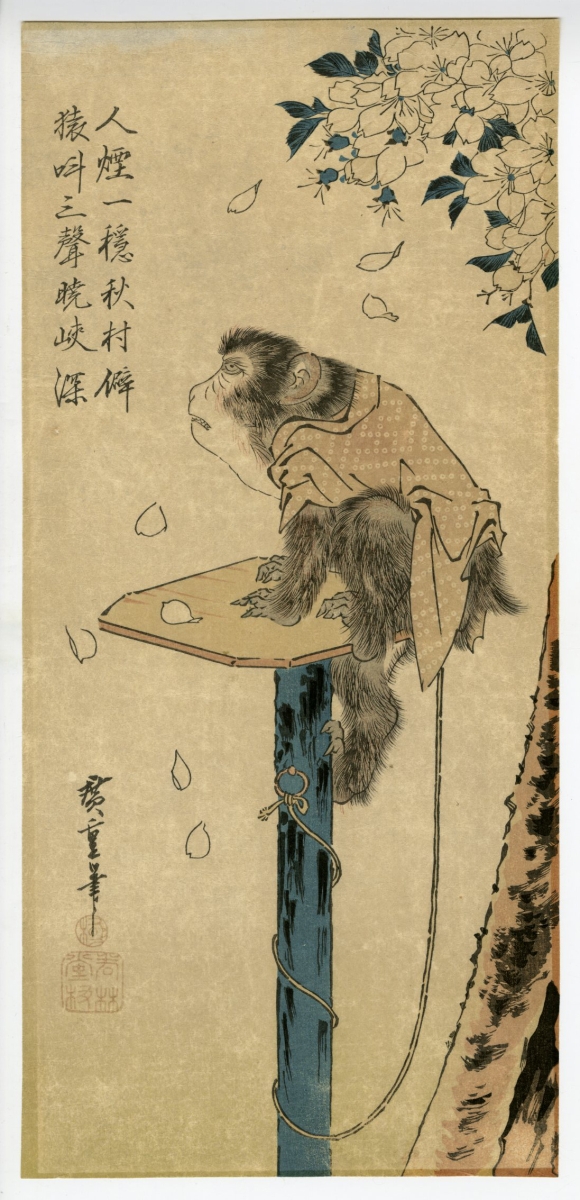 人煙一穏秋村僻
猿叫三聲暁峡深
廣重筆